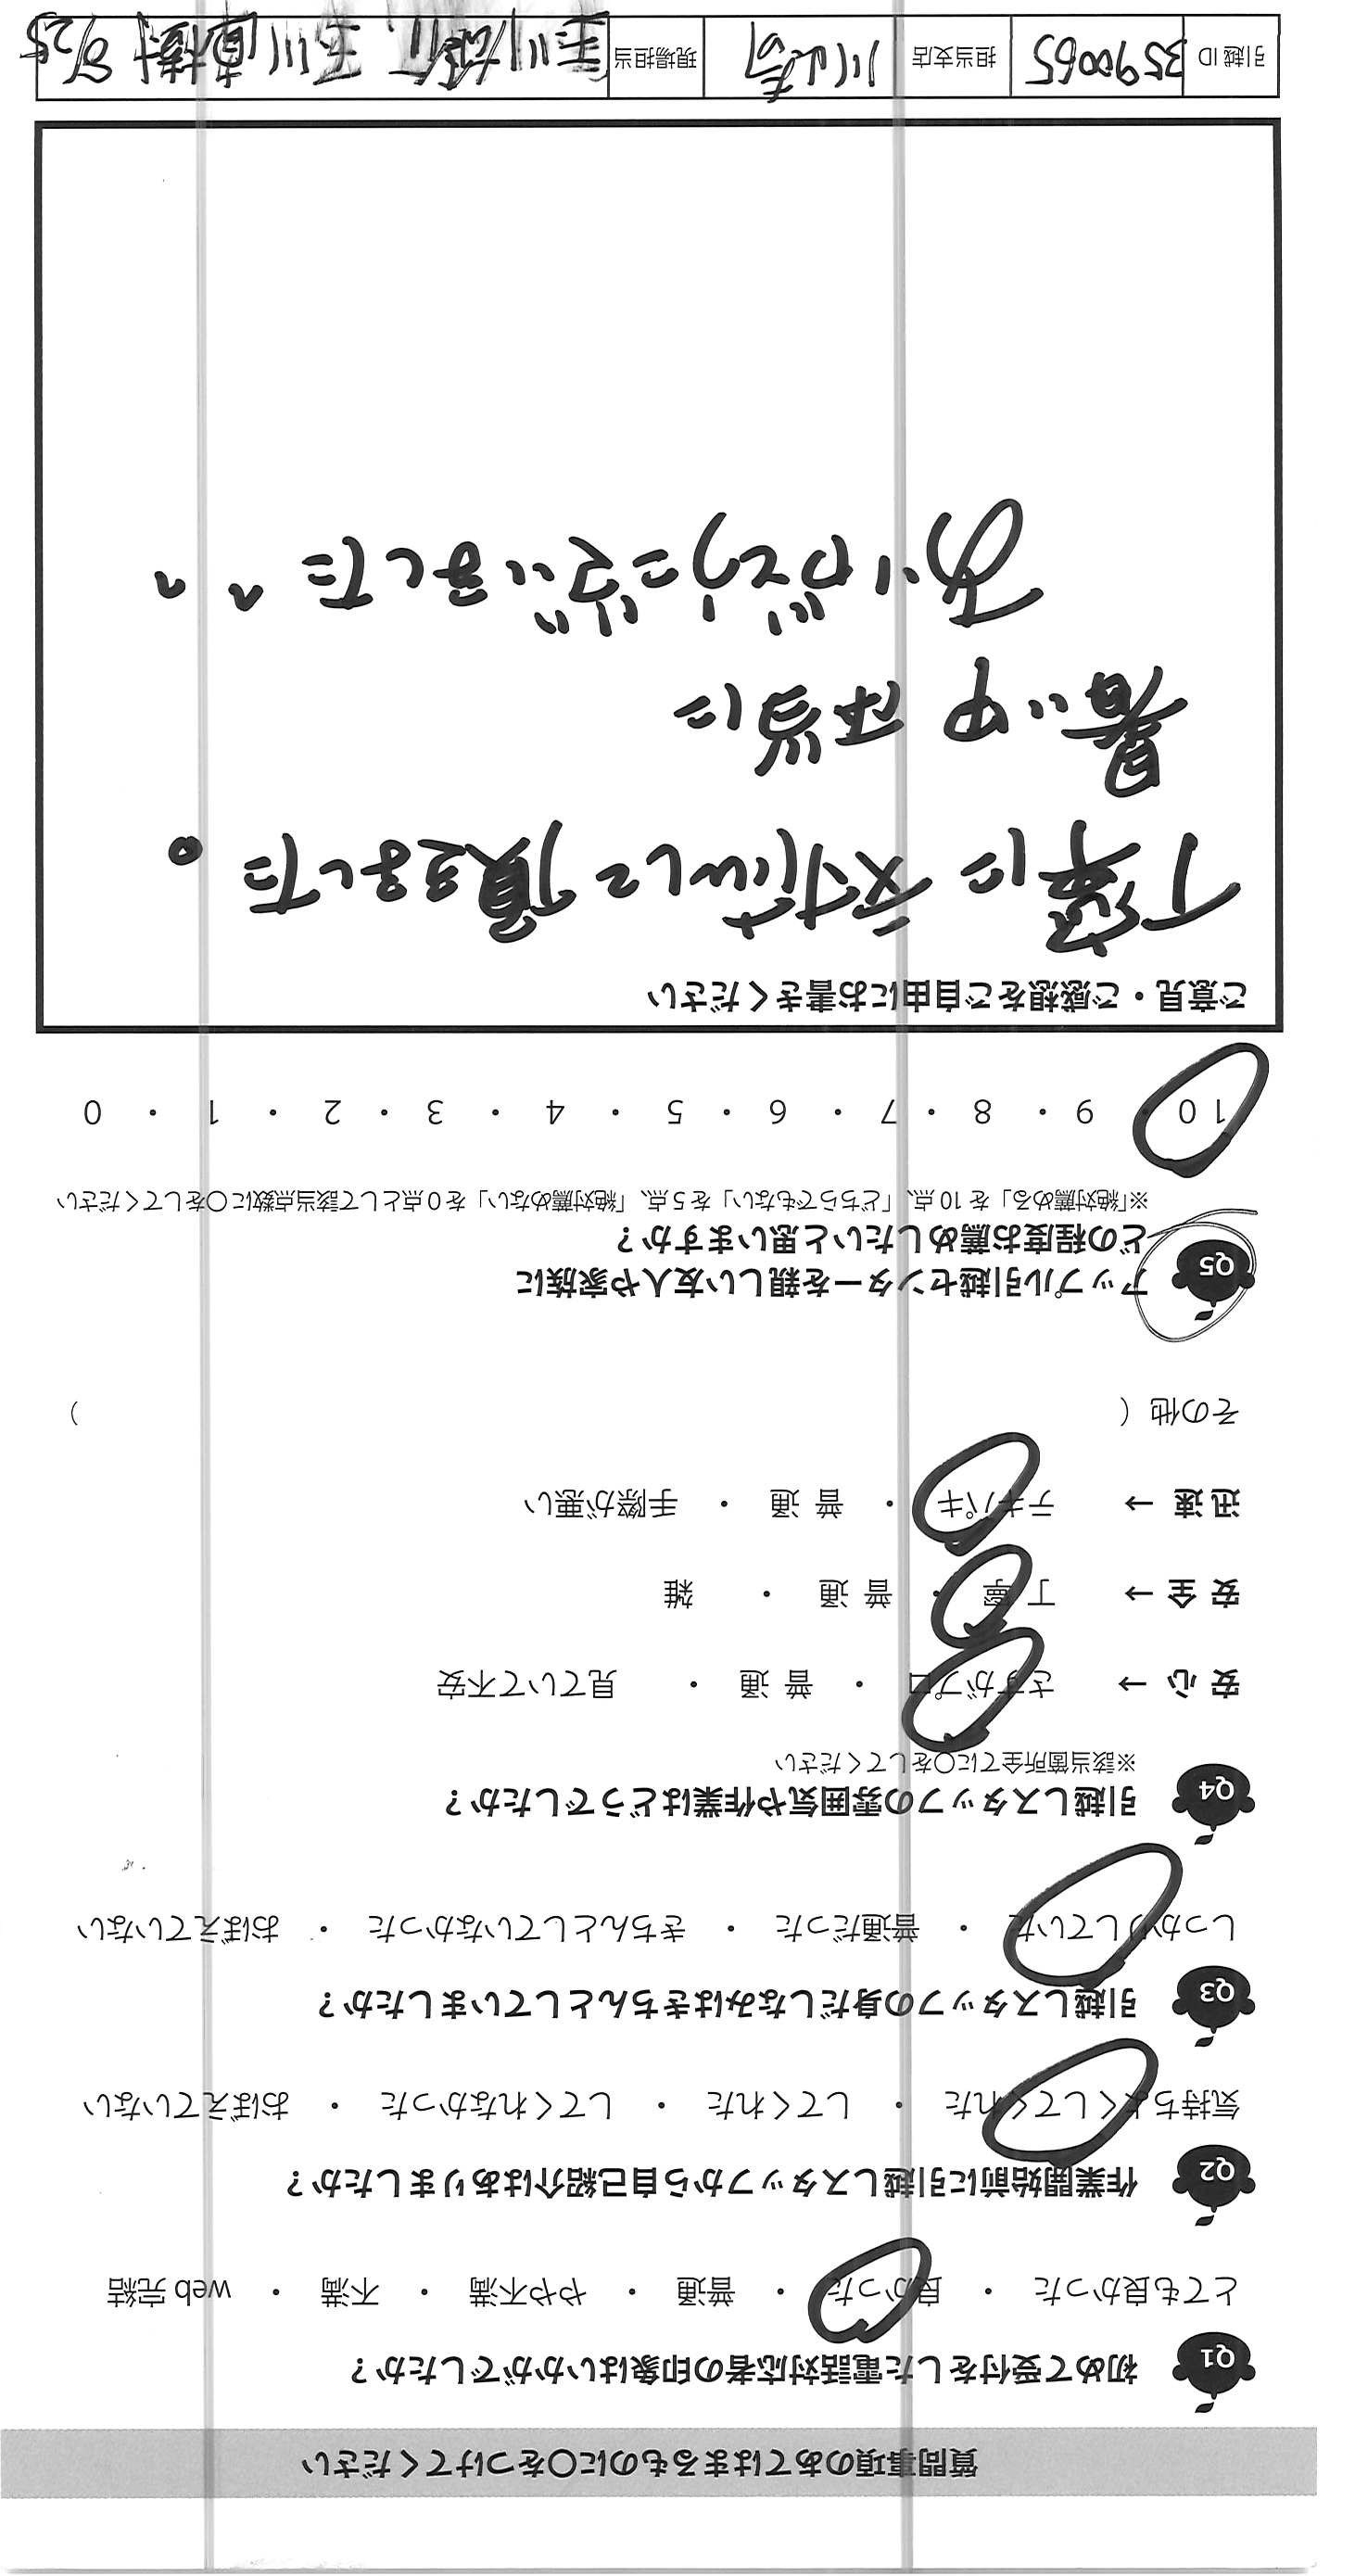 質問事項のあてはまるものに〇をつけてください
Q1 初めて受付をした電話対応者の印象はいかがでしたか？
とても良かった ・ 良かった ・ 普通 ・ やや不満 ・ 不満 ・ web 完結
Q2 作業開始前に引越しスタッフから自己紹介はありましたか？
気持ちよくしてくれた ・ してくれた ・ してくれなかった ・ おぼえていない
Q3 引越しスタッフの身だしなみはきちんとしていましたか？
しっかりしていた ・ 普通だった ・ きちんとしていなかった ・ おぼえていない
Q4 引越しスタッフの雰囲気や作業はどうでしたか？
※該当箇所全てに〇をしてください
安 心 → さすがプロ ・ 普 通 ・ 見ていて不安
安 全 → 丁 寧 ・ 普 通 ・ 雑
迅 速 → テキパキ ・ 普 通 ・ 手際が悪い
その他（ ）
Q5 アップル引越センターを親しい友人や家族に
どの程度お薦めしたいと思いますか？
※「絶対薦める」を 10 点、「どちらでもない」を 5 点、「絶対薦めない」を 0 点として該当点数に〇をしてください
10 ・ 9 ・ 8 ・ 7 ・ 6 ・ 5 ・ 4 ・ 3 ・ 2 ・ 1 ・ 0
ご意見・ご感想をご自由にお書きください
丁寧に対応して頂きました。
暑い中 本当に
ありがとうございました ^^
引越 ID 3590065 担当支店 川崎 現場担当 玉川 玉川直樹 8/25